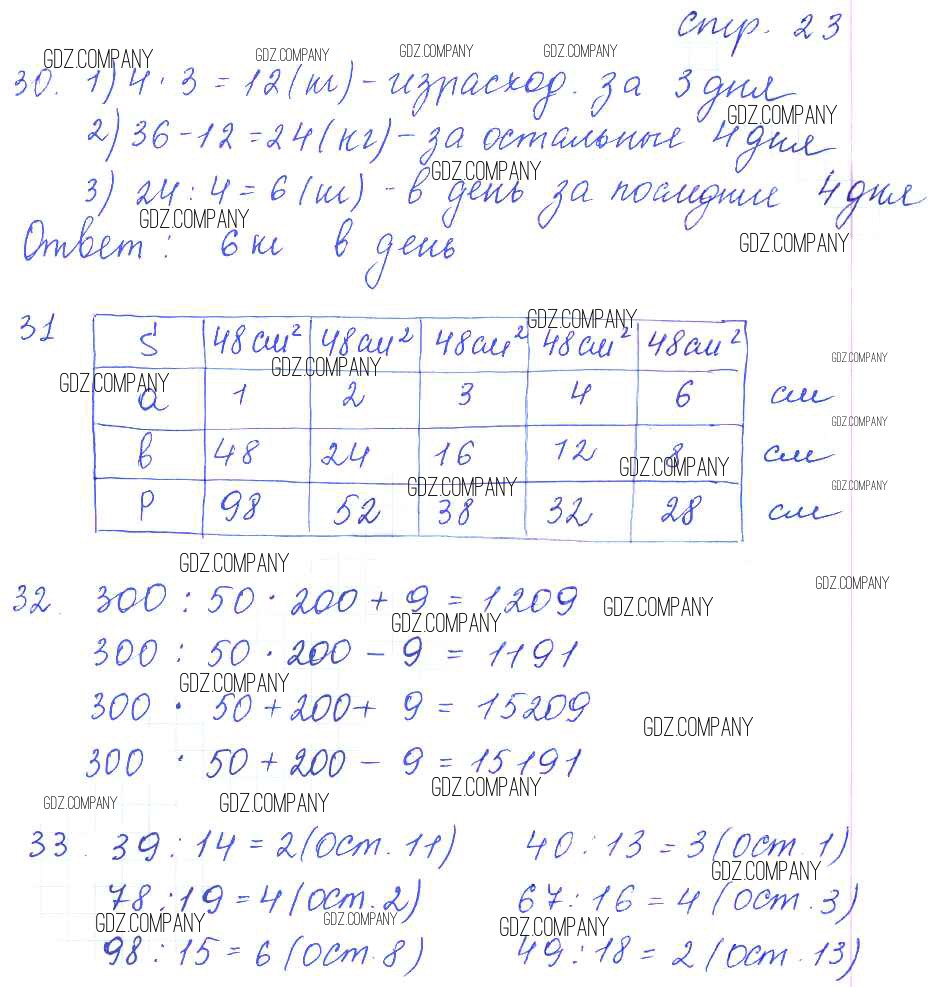 стр. 23
GDZ.COMPANY GDZ.COMPANY GDZ.COMPANY GDZ.COMPANY
30. 1) 4 · 3 = 12 (кг) – израсход. за 3 дня
GDZ.COMPANY
2) 36 – 12 = 24 (кг) – за остальные 4 дня
GDZ.COMPANY
3) 24 : 4 = 6 (кг) – в день за последние 4 дня
GDZ.COMPANY
Ответ : 6 кг в день
GDZ.COMPANY
GDZ.COMPANY
31 S 48 см² 48 см² 48 см² 48 см² 48 см²
GDZ.COMPANY GDZ.COMPANY
GDZ.COMPANY
a 1 2 3 4 6 см
GDZ.COMPANY
в 48 24 16 12 8 см
GDZ.COMPANY
GDZ.COMPANY GDZ.COMPANY
P 98 52 38 32 28 см
GDZ.COMPANY
GDZ.COMPANY
32. 300 : 50 · 200 + 9 = 1209
GDZ.COMPANY
GDZ.COMPANY
300 : 50 · 200 – 9 = 1191
GDZ.COMPANY
300 · 50 + 200 + 9 = 15209
GDZ.COMPANY
300 · 50 + 200 – 9 = 15191
GDZ.COMPANY
GDZ.COMPANY GDZ.COMPANY
33. 39 : 14 = 2 (ост. 11) 40 : 13 = 3 (ост. 1)
GDZ.COMPANY
78 : 19 = 4 (ост. 2) 67 : 16 = 4 (ост. 3)
GDZ.COMPANY GDZ.COMPANY GDZ.COMPANY
98 : 15 = 6 (ост. 8) 49 : 18 = 2 (ост. 13)